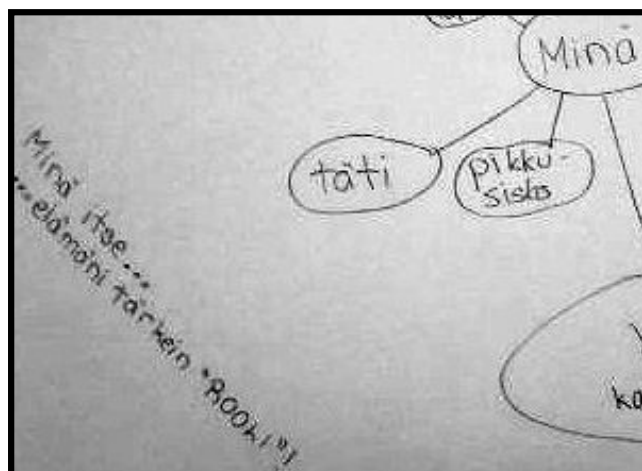 Minä
täti
pikku-
sisko
Minä itse...
...elämäni tärkein "ROOLI"!
ka